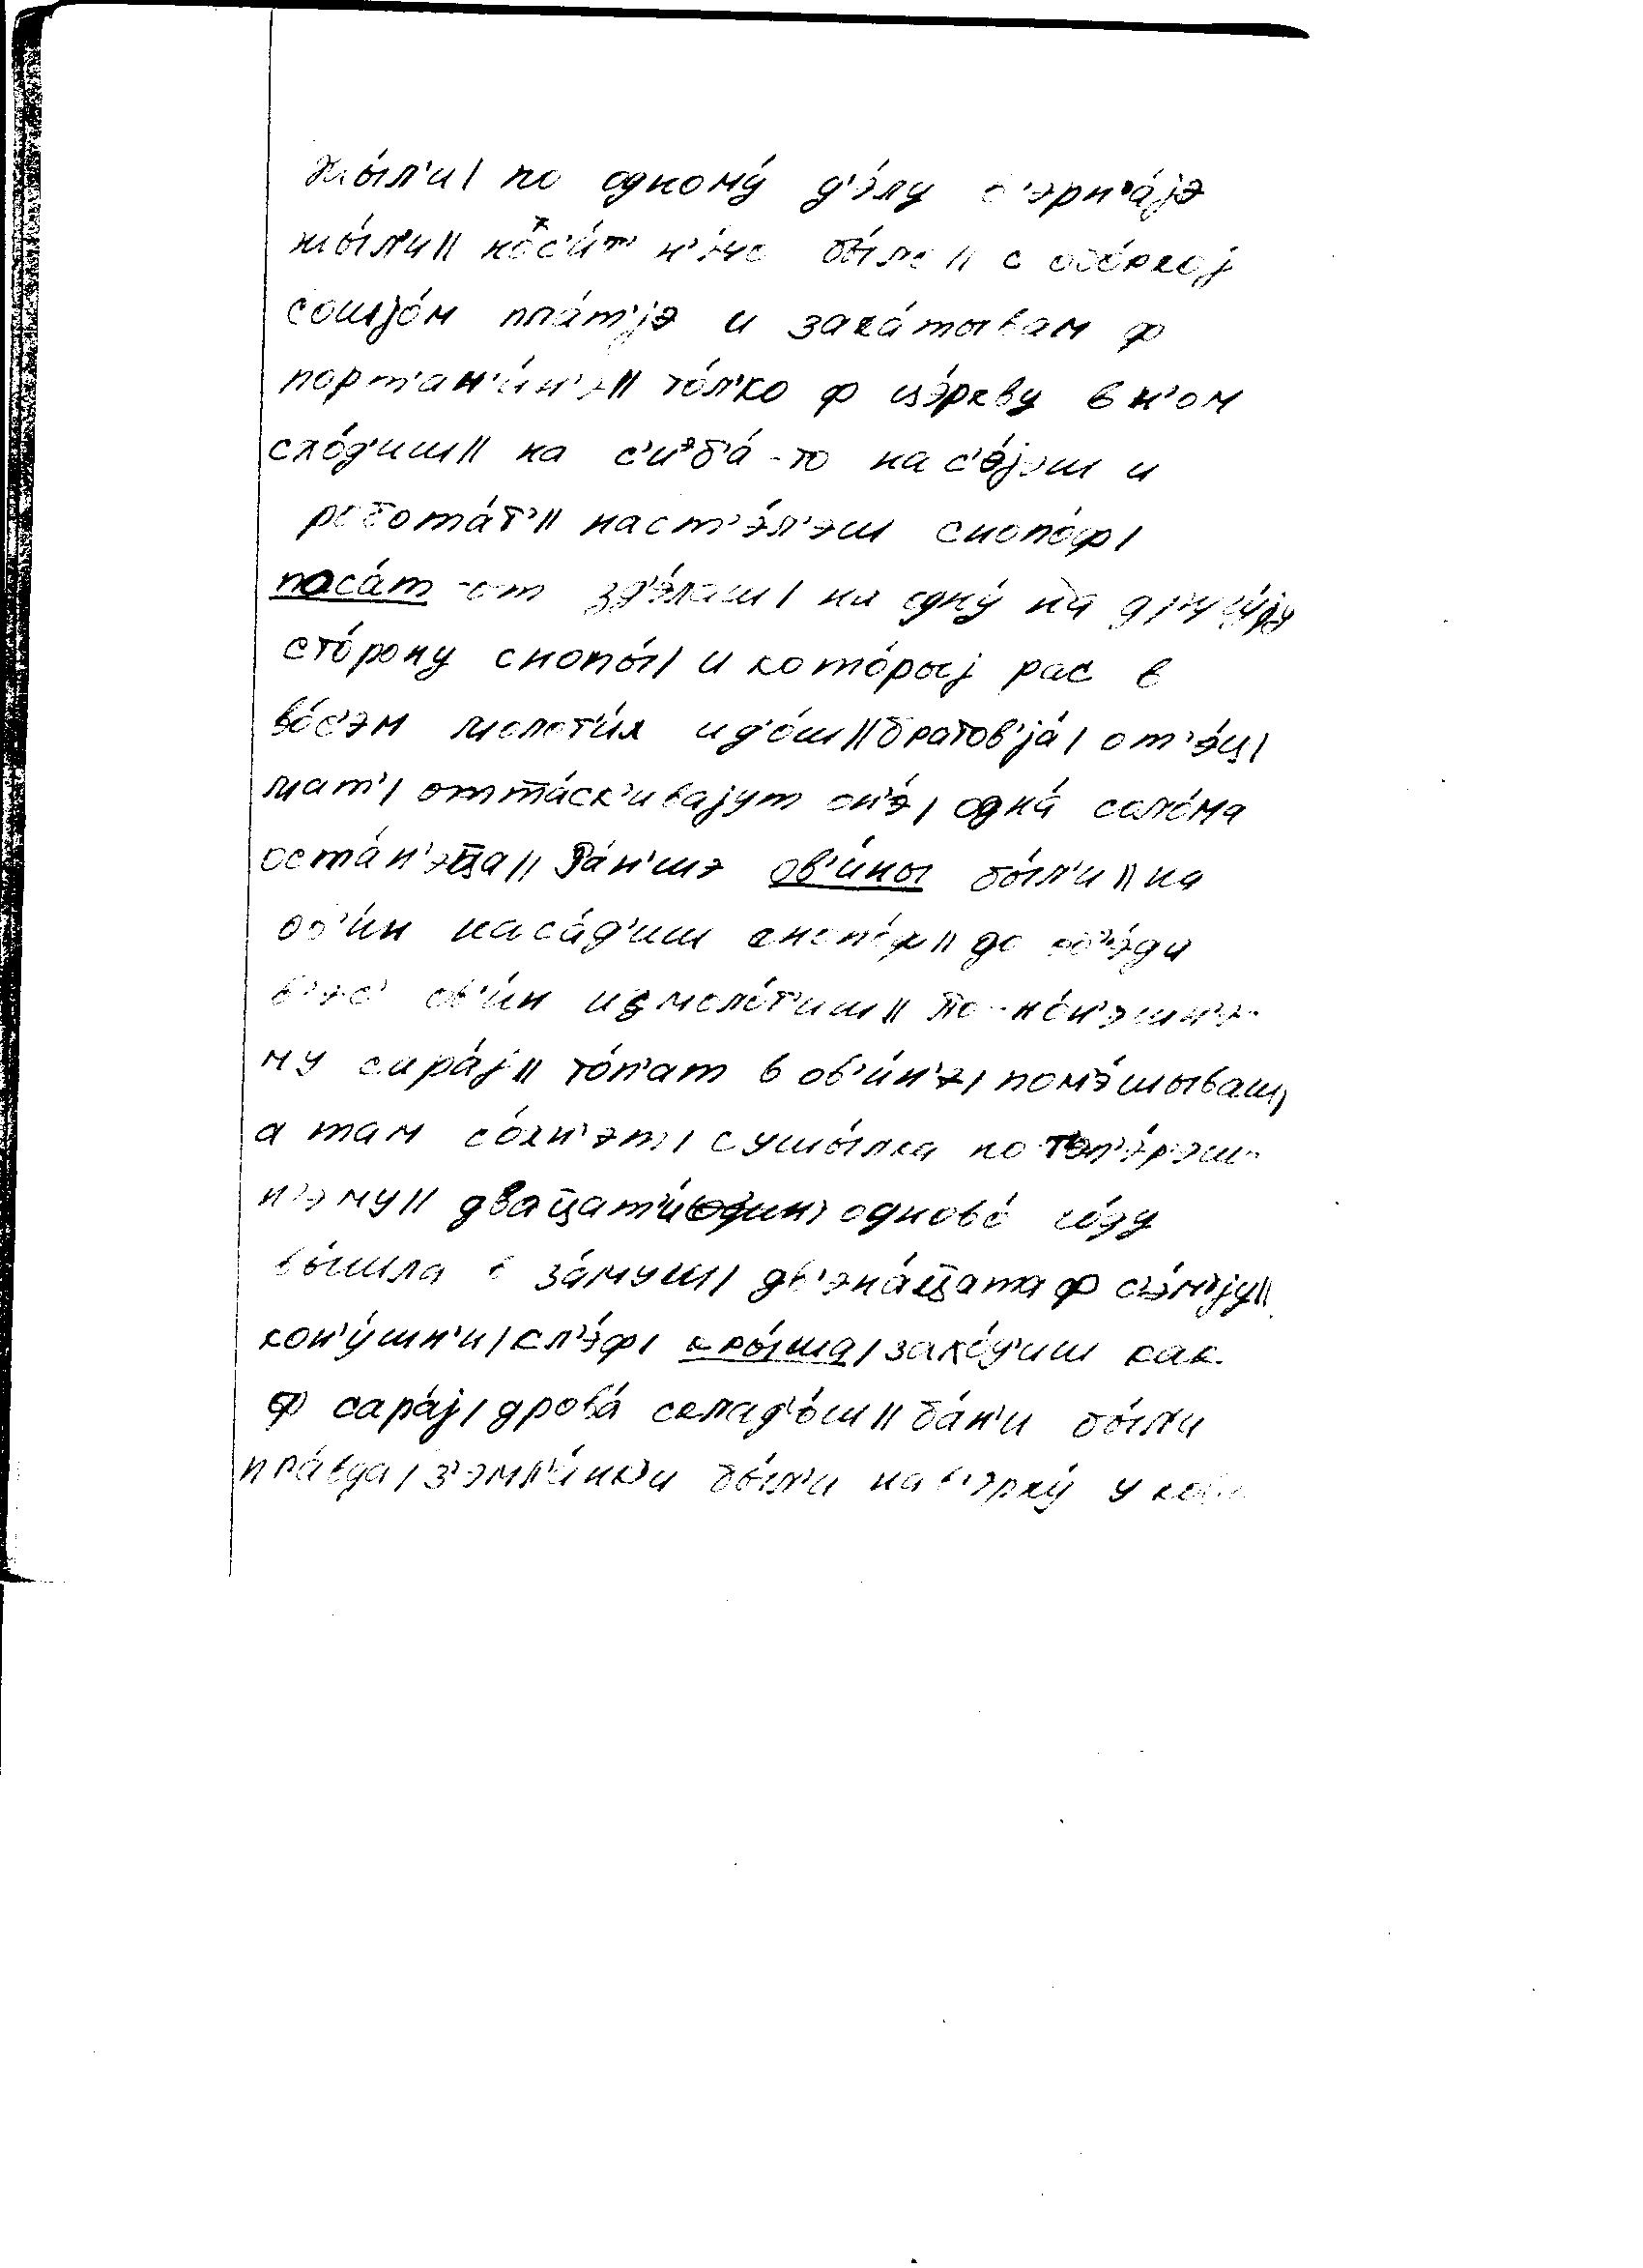 жы́л'и/ по одному́ д'э́лу в'эрн'а́jэ
жы́л'и// нос'и́т' н'э́чо бы́ло// с обо́ркоj
сошjо́м пла́т'jэ и зака́тывам ф
порт'ан'и́н'э// то́л'ко ф цэ́ркву в н'ом
схо́д'иш// на с'иэб'а́-то нас'э́jэш и
робота́т'// наст'э́л'эш снопо́ф/
поса́т-от зд'э́лаш/ на одну́ на другу́jу
сто́рону снопы́/ и кото́рыj рас в
во́с'эм молот'и́л ид'о́ш// братов'jа́/ от'э́ц/
мат'/ отта́ск'иваjут он'э́/ одна́ соло́ма
оста́н'эца// Ра́н'шэ ов'и́ны бы́л'и// на
ов'и́н наса́д'иш снопо́ф// до об'э́да
в'эс' ов'и́н измоло́т'иш// По-но́н'эшн'э-
му сара́j// то́п'ат в ов'и́н'э/ помэ́шываш/
а там со́хн'эт/ сушы́лка по т'эп'э́р'эш-
н'эму// двацат'и́ одново́ го́ду
вы́шла в за́муш/ дв'эна́цата ф с'эм'jу́//
кон'у́шн'и/ хл'эф/ кры́ша/ захо́д'иш как
ф сара́j/ дрова́ склад'о́ш// ба́н'и бы́л'и
пра́вда/ з'эмл'а́нк'и бы́л'и нав'эрху́ у ково